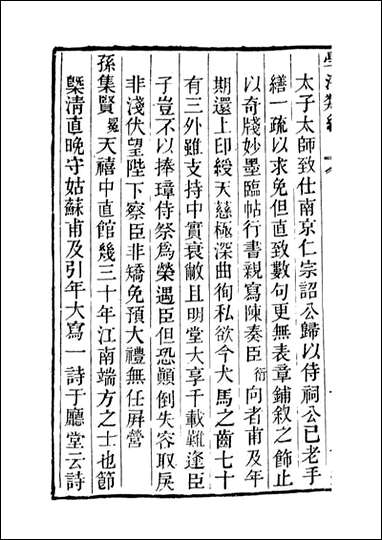 太子太師致仕南京仁宗詔公歸以侍祠公已老手
繕一疏以求免但直致數句更無表章鋪敘之飾止
以奇牋妙墨臨帖行書親寫陳奏臣衍向者甫及年
期還上印綬天慈極深曲徇私欲今犬馬之齒七十
有三外雖支持中實衰敝且明堂大享千載難逢臣
子豈不以捧璋侍祭爲榮遇臣但恐顛倒失容取戾
非淺伏望陛下察臣非矯免預大禮無任屏營
孫集賢冕天禧中直館幾三十年江南端方之士也節
槩清直晚守姑蘇甫及引年大寫一詩于廳堂云詩